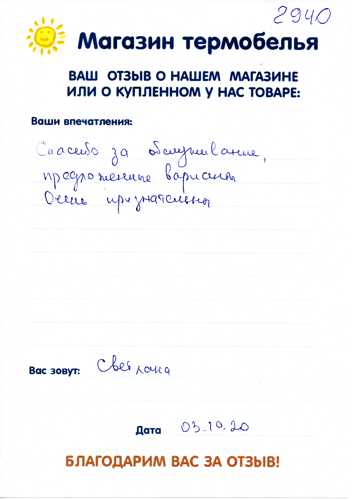 2940
Магазин термобелья
ВАШ ОТЗЫВ О НАШЕМ МАГАЗИНЕ
ИЛИ О КУПЛЕННОМ У НАС ТОВАРЕ:
Ваши впечатления:
Спасибо за обслуживание,
предложенные варианты
Очень признательны
Вас зовут: Светлана
Дата 03.10.20
БЛАГОДАРИМ ВАС ЗА ОТЗЫВ!